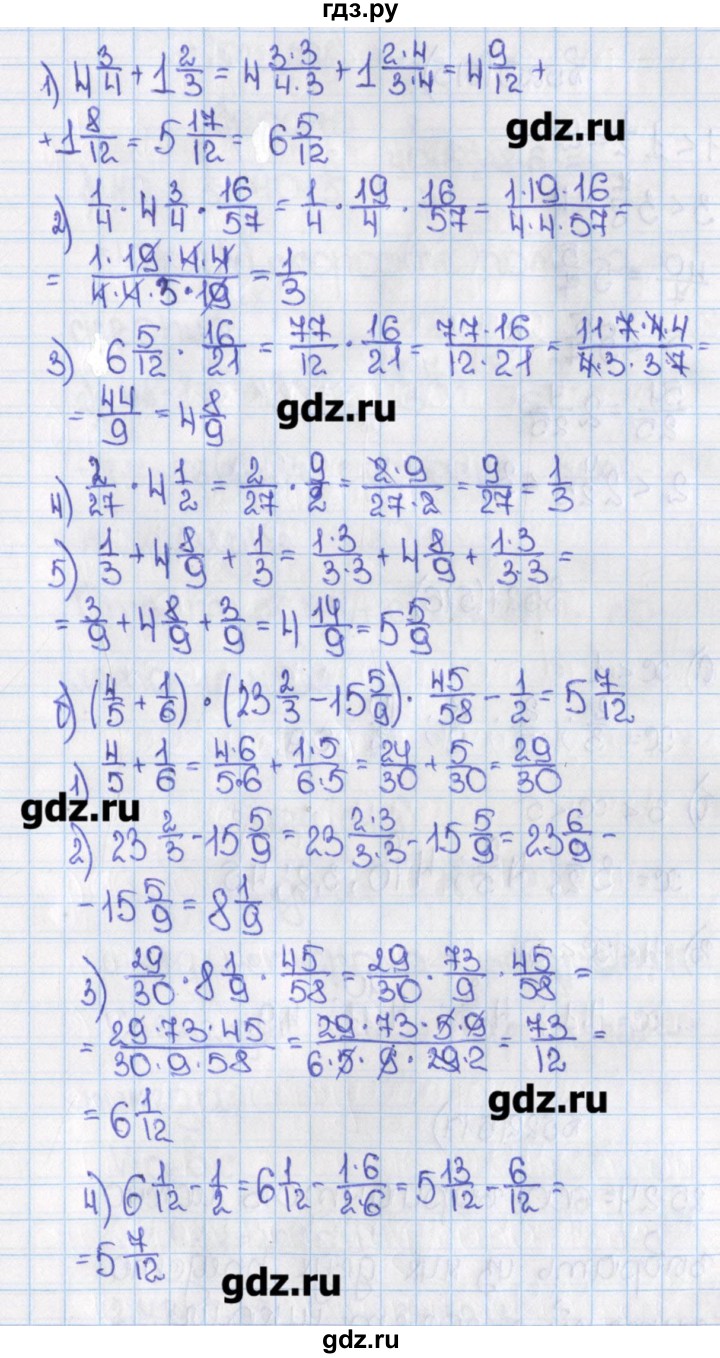 гдз.ру
1) 4 3/4 + 1 2/3 = 4 3·3/4·3 + 1 2·4/3·4 = 4 9/12 +
+ 1 8/12 = 5 17/12 = 6 5/12
gdz.ru
2) 1/4 · 4 3/4 · 16/57 = 1/4 · 19/4 · 16/57 = 1·19·16/4·4·57 =
= 1·19·4·4/4·4·3·19 = 1/3
3) 6 5/12 · 16/21 = 77/12 · 16/21 = 77·16/12·21 = 11·7·4·4/4·3·3·7 =
= 44/9 = 4 8/9
gdz.ru
4) 2/27 · 4 1/2 = 2/27 · 9/2 = 2·9/27·2 = 9/27 = 1/3
5) 1/3 + 4 8/9 + 1/3 = 1·3/3·3 + 4 8/9 + 1·3/3·3 =
= 3/9 + 4 8/9 + 3/9 = 4 14/9 = 5 5/9
б) (4/5 + 1/6) · (23 2/3 - 15 5/9) · 45/58 - 1/2 = 5 7/12
1) 4/5 + 1/6 = 4·6/5·6 + 1·5/6·5 = 24/30 + 5/30 = 29/30
gdz.ru
2) 23 2/3 - 15 5/9 = 23 2·3/3·3 - 15 5/9 = 23 6/9 -
- 15 5/9 = 8 1/9
3) 29/30 · 8 1/9 · 45/58 = 29/30 · 73/9 · 45/58 =
= 29·73·45/30·9·58 = 29·73·5·9/6·5·9·29·2 = 73/12 =
= 6 1/12
gdz.ru
4) 6 1/12 - 1/2 = 6 1/12 - 1·6/2·6 = 5 13/12 - 6/12 =
= 5 7/12
gdz.ru
gdz.ru